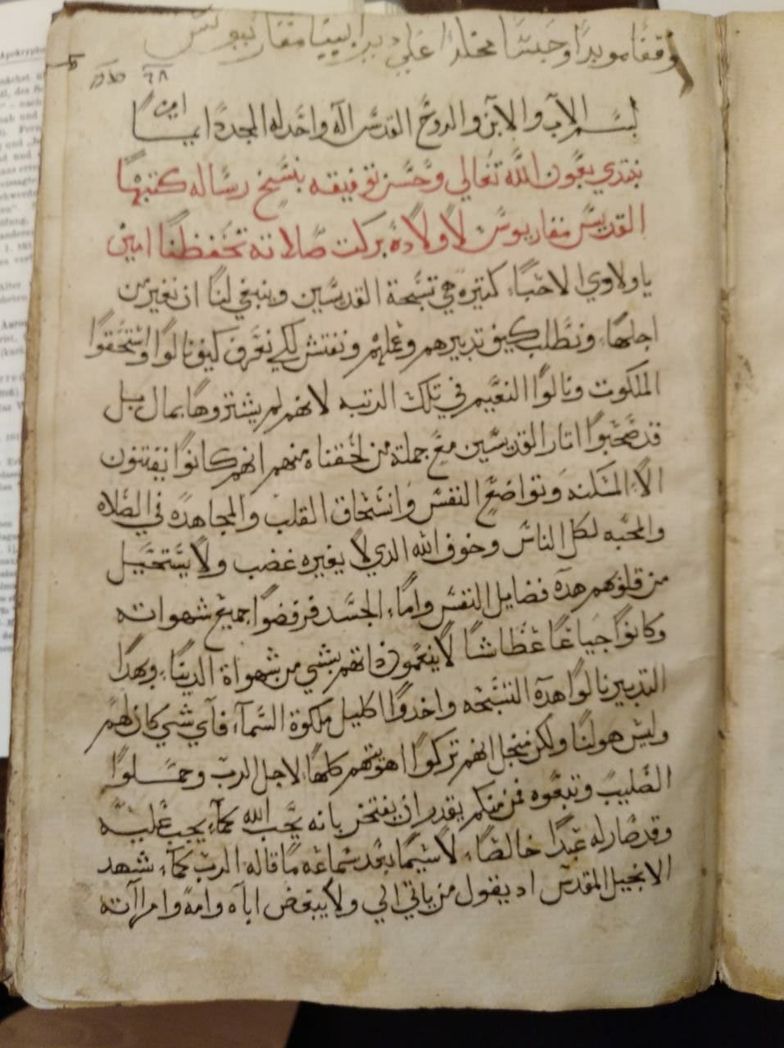 وقفا موبدا وحبسا مخلدا علي دير ابينا مقاريوس
٦٨
بسم الاب والابن والروح القدس اله واحد له المجد دايما امين
نبتدي بعون الله تعالي وحسن توفيقه بنسخ رساله كتبها
القديس مقاريوس لاولاده بركت صلاته تحفظنا امين
ياولادي الاحبا، كتيره هي تسبحة القديسين وينبغي لنا ان نغير من
اجلها، ونطلب كيف تدبيرهم وعملهم ونفتش لكي نعرف كيف نالوا واستحقوا
الملكوت ونالوا النعيم في تلك الرتبه لانهم لم يشتروها بمال بل
قد صحبوا اتار القديسين مع جملة من لحقناه منهم انهم كانوا يقتنون
الا، المسكنه وتواضع النفس وانسحاق القلب والمجاهده في الصلاه
والمحبه لكل الناس وخوف الله الدي لا يغيره غضب ولا يستحيل
من قلوبهم هده فضايل النفس واما، الجسد فرفضوا جميع شهواته
وكانوا جياعا عطاشا لا ينعمون داتهم بشي من شهواة الدينا، وبهدا
التدبير نالوا هده التسبحه واخدوا اكليل ملكوة السما، فاي شي كان لهم
وليس هو لنا ولكن منجل انهم تركوا اهويتهم كلها، لاجل الرب وحملوا
الصليب وتبعوه فمن منكم يقدر ان يفتخر بانه يحب الله كما، يجب عليه
وقد صار له عبدا خالصا، لاسيما بعد سماعه ما قاله الرب كما، شهد
الانجيل المقدس اد يقول من ياتي الي ولا يبغض اباه وامه وامراته